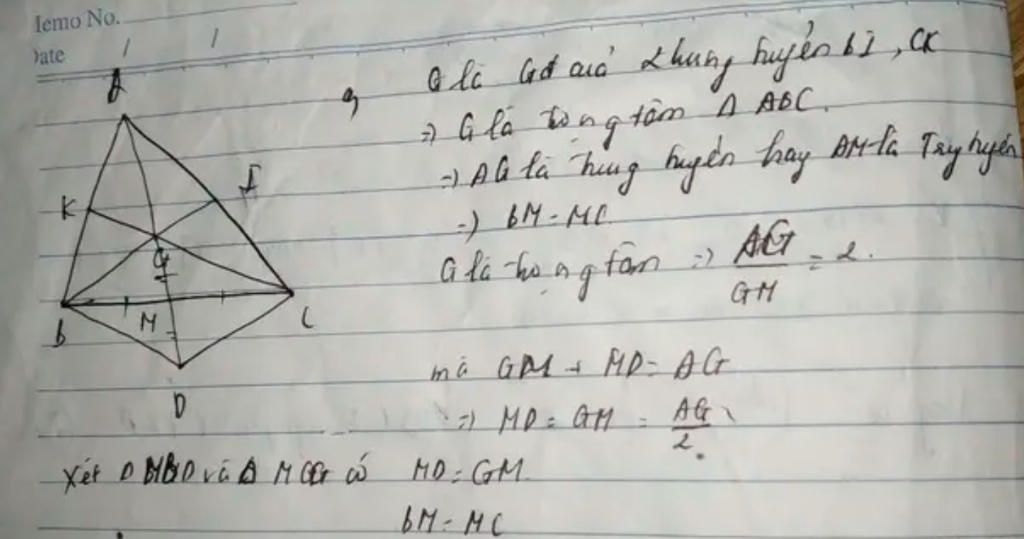 Memo No.
Date / /
A
K
I
G
B
M
C
D
a, G là Gđ của trung tuyến BI, CK
=> G là trọng tâm Δ ABC.
=> AG là trung tuyến hay AM là Trung tuyến
=> BM = MC
G là trọng tâm => AG/GM = 2.
mà GM + MD = AG
=> MD = GM = AG/2.
Xét Δ MBD và Δ MCG có MD = GM.
BM = MC